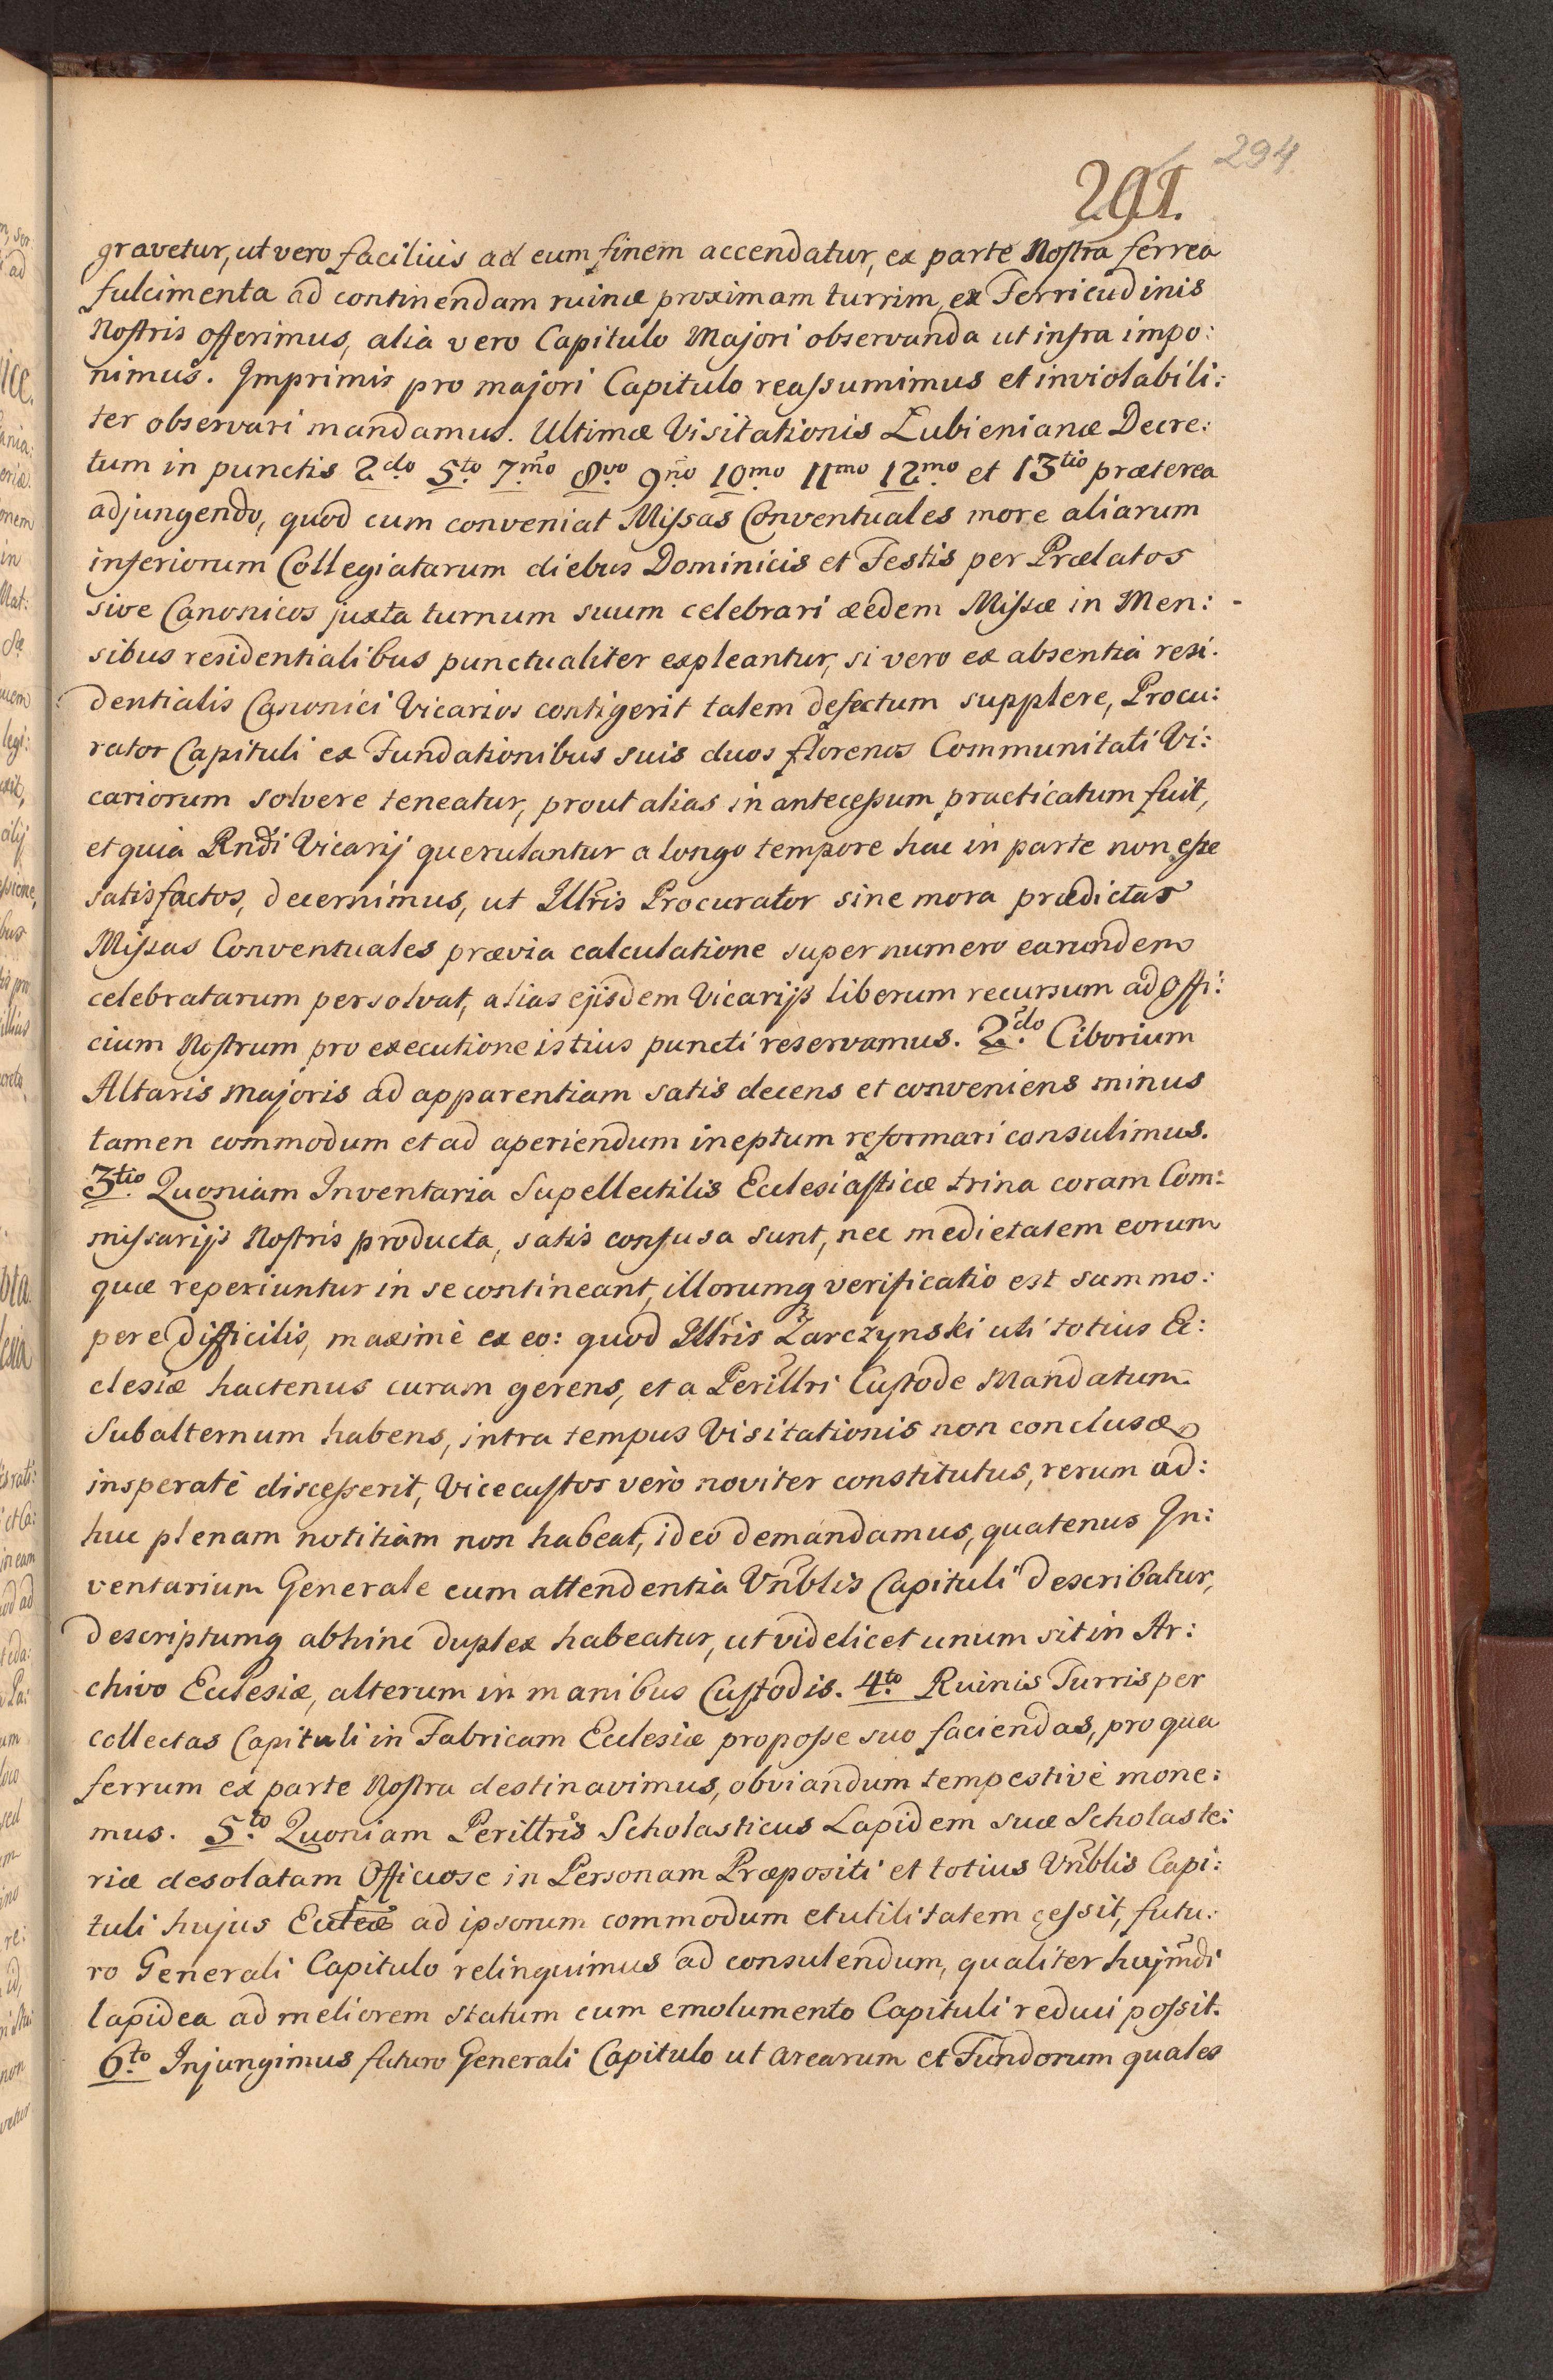 294
291.
gravetur, ut vero facilius ad eum finem accendatur, ex parte Nostra ferrea
fulcimenta ad continendam ruinæ proximam turrim, ex Ferricudinis
Nostris offerimus, alia vero Capitulo Majori observanda ut infra impo:
nimus. Imprimis pro majori Capitulo reassumimus et inviolabili:
ter observari mandamus. Ultimæ Visitationis Łubienianæ Decre:
tum in punctis 2do 5to 7mo 8vo 9no 10mo 11mo 12mo et 13tio præterea
adjungendo, quod cum conveniat Missas Conventuales more aliarum
inferiorum Collegiatarum diebus Dominicis et Festis per Prælatos
sive Canonicos juxta turnum suum celebrari æedem Missæ in Men:
sibus residentialibus punctualiter expleantur, si vero ex absentia resi.
dentialis Canonici Vicarios contigerit talem defectum supplere, Procu:
rator Capituli ex Fundationibus suis duos florenos Communitati Vi:
cariorum solvere teneatur, prout alias in antecessum practicatum fuit,
et quia Rndi Vicarij querulantur a longo tempore hac in parte non esse
satisfactos, decernimus, ut Illris Procurator sine mora prædictas
Missas Conventuales prævia calculatione super numero earundem
celebratarum persolvat, alias ejisdem Vicarijs liberum recursum ad Offi:
cium Nostrum pro executione istius puncti reservamus. 2do Ciborium
Altaris majoris ad apparentiam satis decens et conveniens minus
tamen commodum et ad aperiendum ineptum reformari consulimus.
3tio Quoniam Inventaria Supellectilis Ecclesiasticæ trina coram Com:
missarijs Nostris producta, satis confusa sunt, nec medietatem eorum
quæ reperiuntur in se contineant, illorumq verificatio est summo:
pere difficilis, maximè ex eo: quod Illris Zarczynski uti totius Ec:
clesiæ hactenus curam gerens, et a Perillri Custode Mandatum
Subalternum habens, intra tempus Visitationis non conclusæ
insperatè discesserit, Vicecustos verò noviter constitutus, rerum ad:
huc plenam notitiam non habeat, ideo demandamus, quatenus In:
ventarium Generale cum attendentia Vnblis Capituli describatur,
descriptumq abhinc duplex habeatur, ut videlicet unum sit in Ar:
chivo Ecclesiæ, alterum in manibus Custodis. 4to Ruinis Turris per
collectas Capituli in Fabricam Ecclesiæ proposse suo faciendas, pro qua
ferrum ex parte Nostra destinavimus, obviandum tempestivè mone:
mus. 5to Quoniam Perillris Scholasticus Lapidem suæ Scholaste:
riæ desolatam Officiose in Personam Præpositi et totius Vnblis Capi:
tuli hujus Ecclæ ad ipsorum commodum et utilitatem cessit, futu:
ro Generali Capitulo relinquimus ad consulendum, qualiter hujmdi
lapidea ad meliorem statum cum emolumento Capituli reduci possit.
6to Injungimus futuro Generali Capitulo ut arearum et Fundorum quales